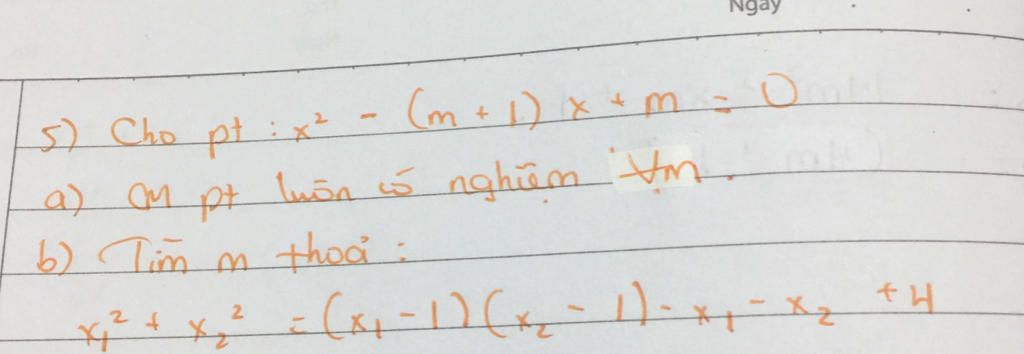 Ngày
5) Cho pt : x² - (m + 1) x + m = 0
a) CM pt luôn có nghiệm ∀m.
b) Tìm m thoả :
x₁² + x₂² = (x₁ - 1)(x₂ - 1) - x₁ - x₂ + 4